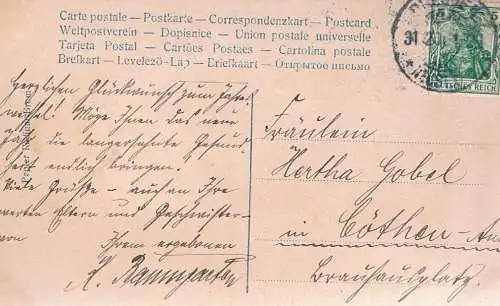 Carte postale – Postkarte – Correspondenzkart – Postcard
Weltpostverein – Dopisnice – Union postale universelle
Tarjeta Postal – Cartões Postaes – Cartolina postale
Brefkart – Levelező-Lap – Briefkaart – Открытое письмо
Herzlichen Glückwunsch zum Jahres-
wechsel! Möge Ihnen das neue
Jahr die langersehnte Gesund-
heit endlich bringen.
Viele Grüße – auch an Ihre
werten Eltern und Geschwister –
von
Ihrem ergebenen
K. Baumgarten
Fräulein
Hertha Gobel
in Cöthen-An
Brauhausplatz.
31
DEUTSCHES REICH